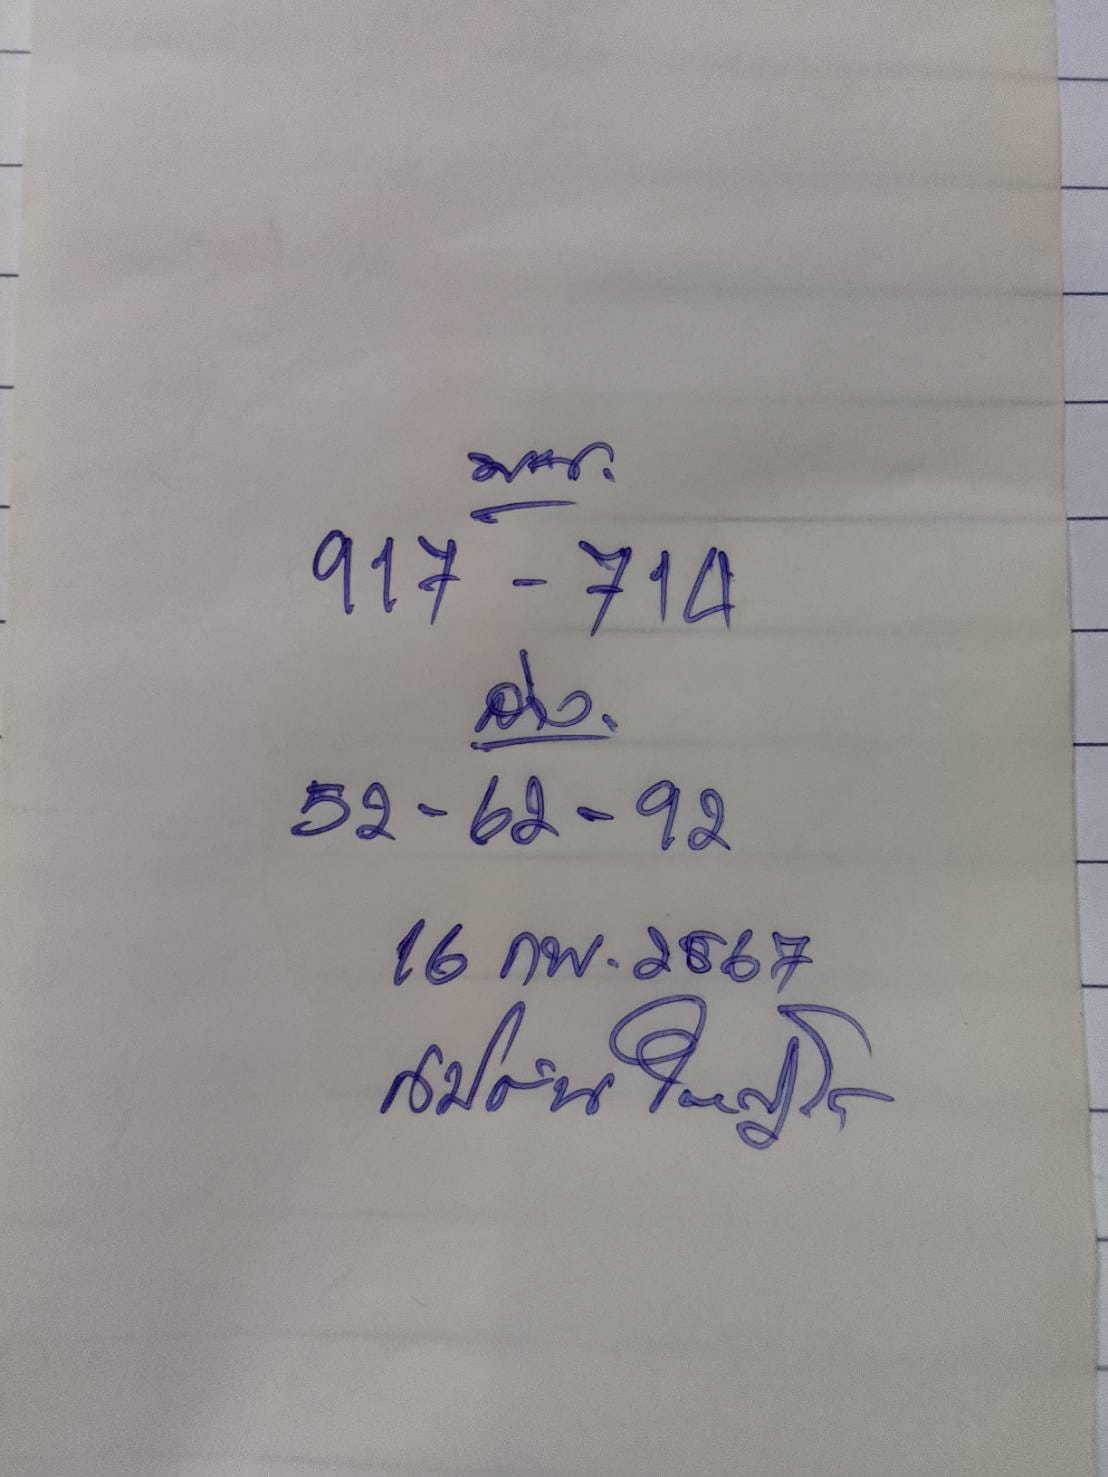 บน.
917 - 714
ล่าง.
52 - 62 - 92
16 กพ. 2567